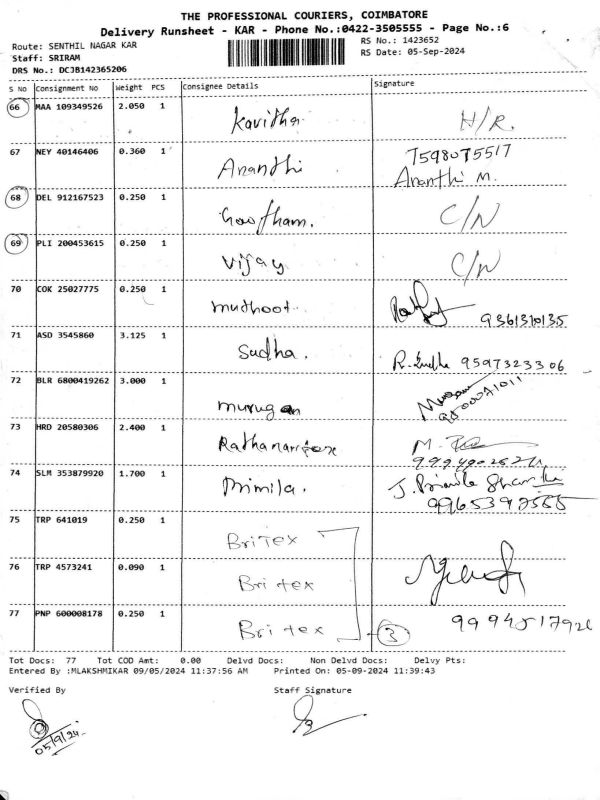 THE PROFESSIONAL COURIERS, COIMBATORE
Delivery Runsheet - KAR - Phone No.:0422-3505555 - Page No.:6
Route: SENTHIL NAGAR KAR
RS No.: 1423652
Staff: SRIRAM
RS Date: 05-Sep-2024
DRS No.: DCJB142365206
S No Consignment No Weight PCS Consignee Details Signature
66 MAA 109349526 2.050 1 Kavitha H/R.
67 NEY 40146406 0.360 1 Ananthi 7598075517
Ananthi M.
68 DEL 912167523 0.250 1 Gowtham. C/N
69 PLI 200453615 0.250 1 Vijay C/N
70 COK 25027775 0.250 1 muthoot 9361310135
71 ASD 3545860 3.125 1 Sudha. R. Sudha 9597323306
72 BLR 6800419262 3.000 1 murugan
73 HRD 20580306 2.400 1 M.
74 SLM 353879920 1.700 1 J.
75 TRP 641019 0.250 1 Britex
76 TRP 4573241 0.090 1 Britex
77 PNP 600008178 0.250 1 Britex 3
Tot Docs: 77 Tot COD Amt: 0.00 Delvd Docs: Non Delvd Docs: Delvy Pts:
Entered By :MLAKSHMIKAR 09/05/2024 11:37:56 AM Printed On: 05-09-2024 11:39:43
Verified By Staff Signature
05/9/24